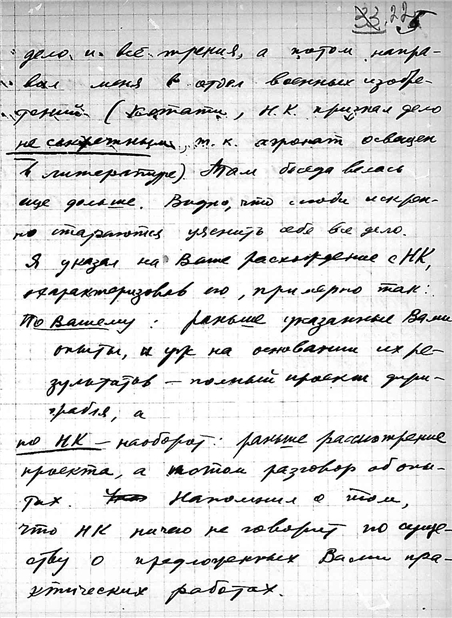 дело и все трения, а потом напра-
вил меня в отдел военных изобре-
тений (Кстати, Н.К. признал дело
не секретным, т.к. аэронат освещен
в литературе). Там беседа велась
еще дольше. Видно, что люди искрен-
но стараются уяснить себе все дело.
Я указал на Ваше расхождение с НК,
охарактеризовав его, примерно так:
По Вашему: раньше указанные Вами
опыты, и уж на основании их ре-
зультатов – полный проект дири-
жабля, а
по НК – наоборот: раньше рассмотрение
проекта, а потом разговор об опы-
тах. Напомнил о том,
что НК ничего не говорит по суще-
ству о предложенных Вами пра-
ктических работах.